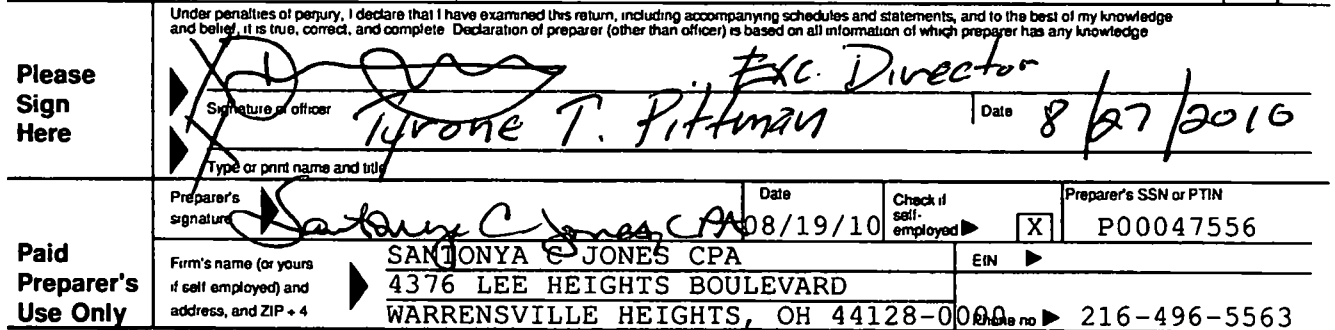 Under penalties of perjury, I declare that I have examined this return, including accompanying schedules and statements, and to the best of my knowledge
and belief, it is true, correct, and complete Declaration of preparer (other than officer) is based on all information of which preparer has any knowledge
Please
Sign
Here
Exc. Director
Signature of officer
Date 8/27/2010
Tyrone T. Pittman
Type or print name and title
Paid
Preparer's
Use Only
Preparer's
signature
Santonya C Jones, CPA
Date
08/19/10
Check if
self-
employed
X
Preparer's SSN or PTIN
P00047556
Firm's name (or yours
if self employed) and
address, and ZIP + 4
SANTONYA C JONES CPA
4376 LEE HEIGHTS BOULEVARD
WARRENSVILLE HEIGHTS, OH 44128-0000
EIN
Phone no 216-496-5563